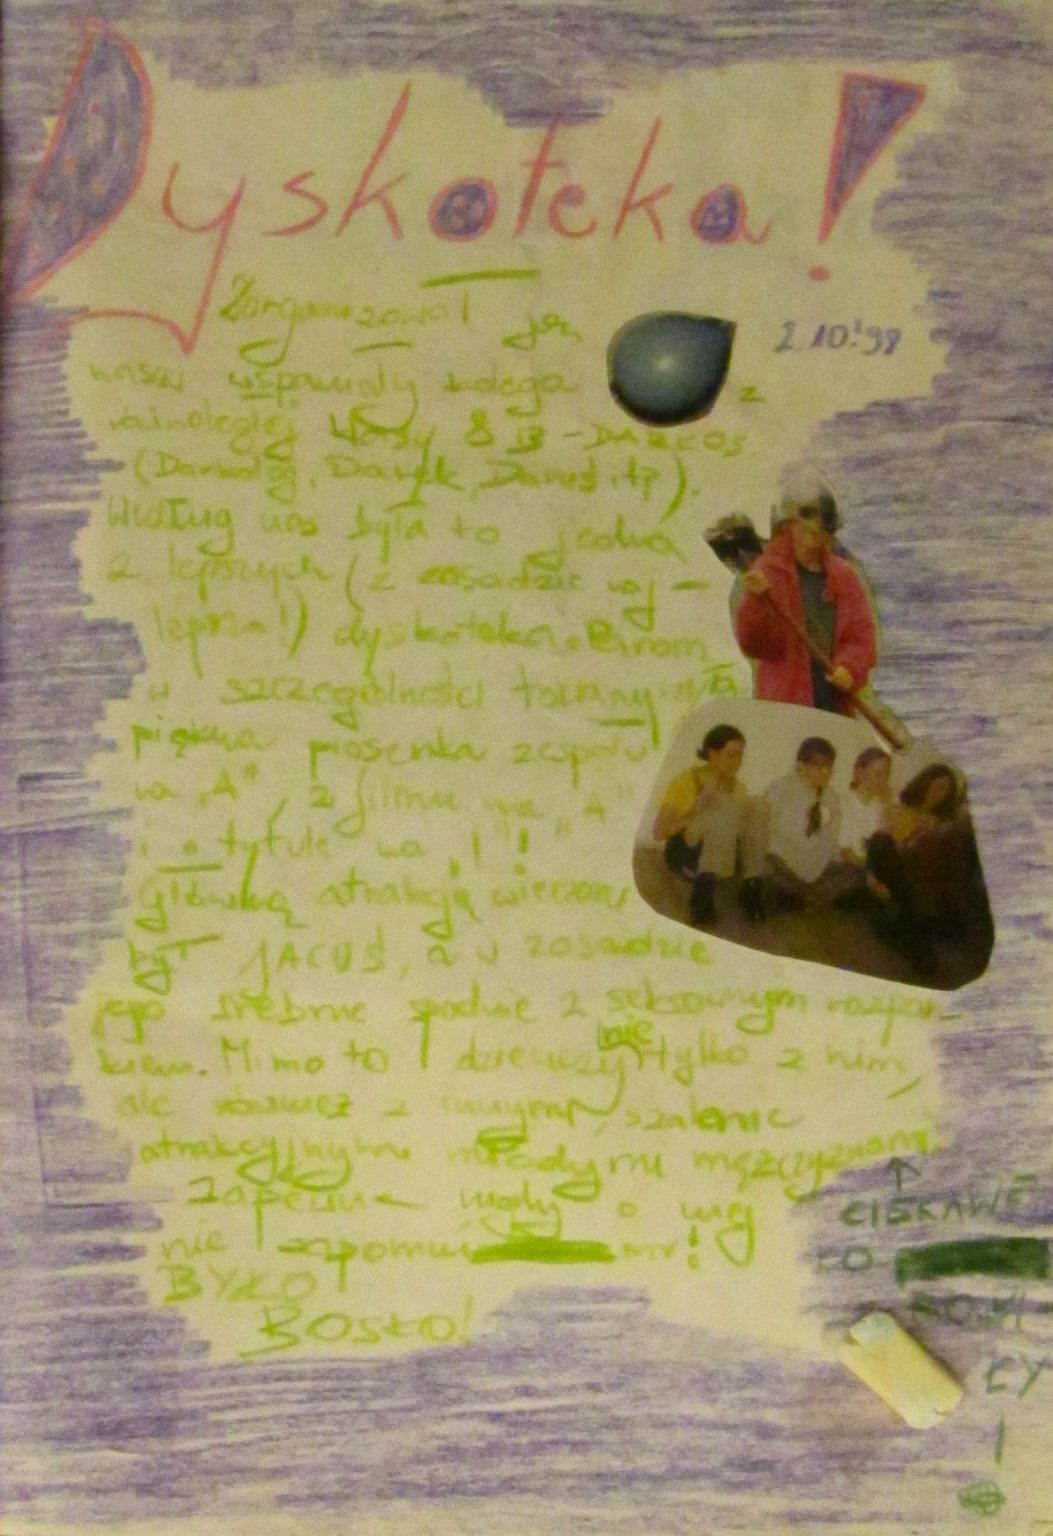 Dyskoteka!
Zorganizował ją
2 10!98
nasz wspaniały kolega z
równoległej klasy 8 B - DARKOS
(Darkos, Darek, Dareś itp).
Według nas była to jedna
z lepszych (w zasadzie naj-
lepsza!) dyskoteka.
w szczególności towarzyszyła
piękna piosenka zespołu
na "A", z filmu na "A"
i o tytule na "I"!
Główną atrakcją wieczoru
był JACUŚ, a w zasadzie
jego srebrne spodnie z seksownym rozpor-
kiem. Mimo to dziewczy nie tylko z nim,
ale również z innymi, szalenie
atrakcyjnymi młodymi mężczyznami.
Zapewne nigdy o niej
nie zapomni my!
BYŁO
BOSKO!
CIEKAWE
CO
ROBI
ŁY
!